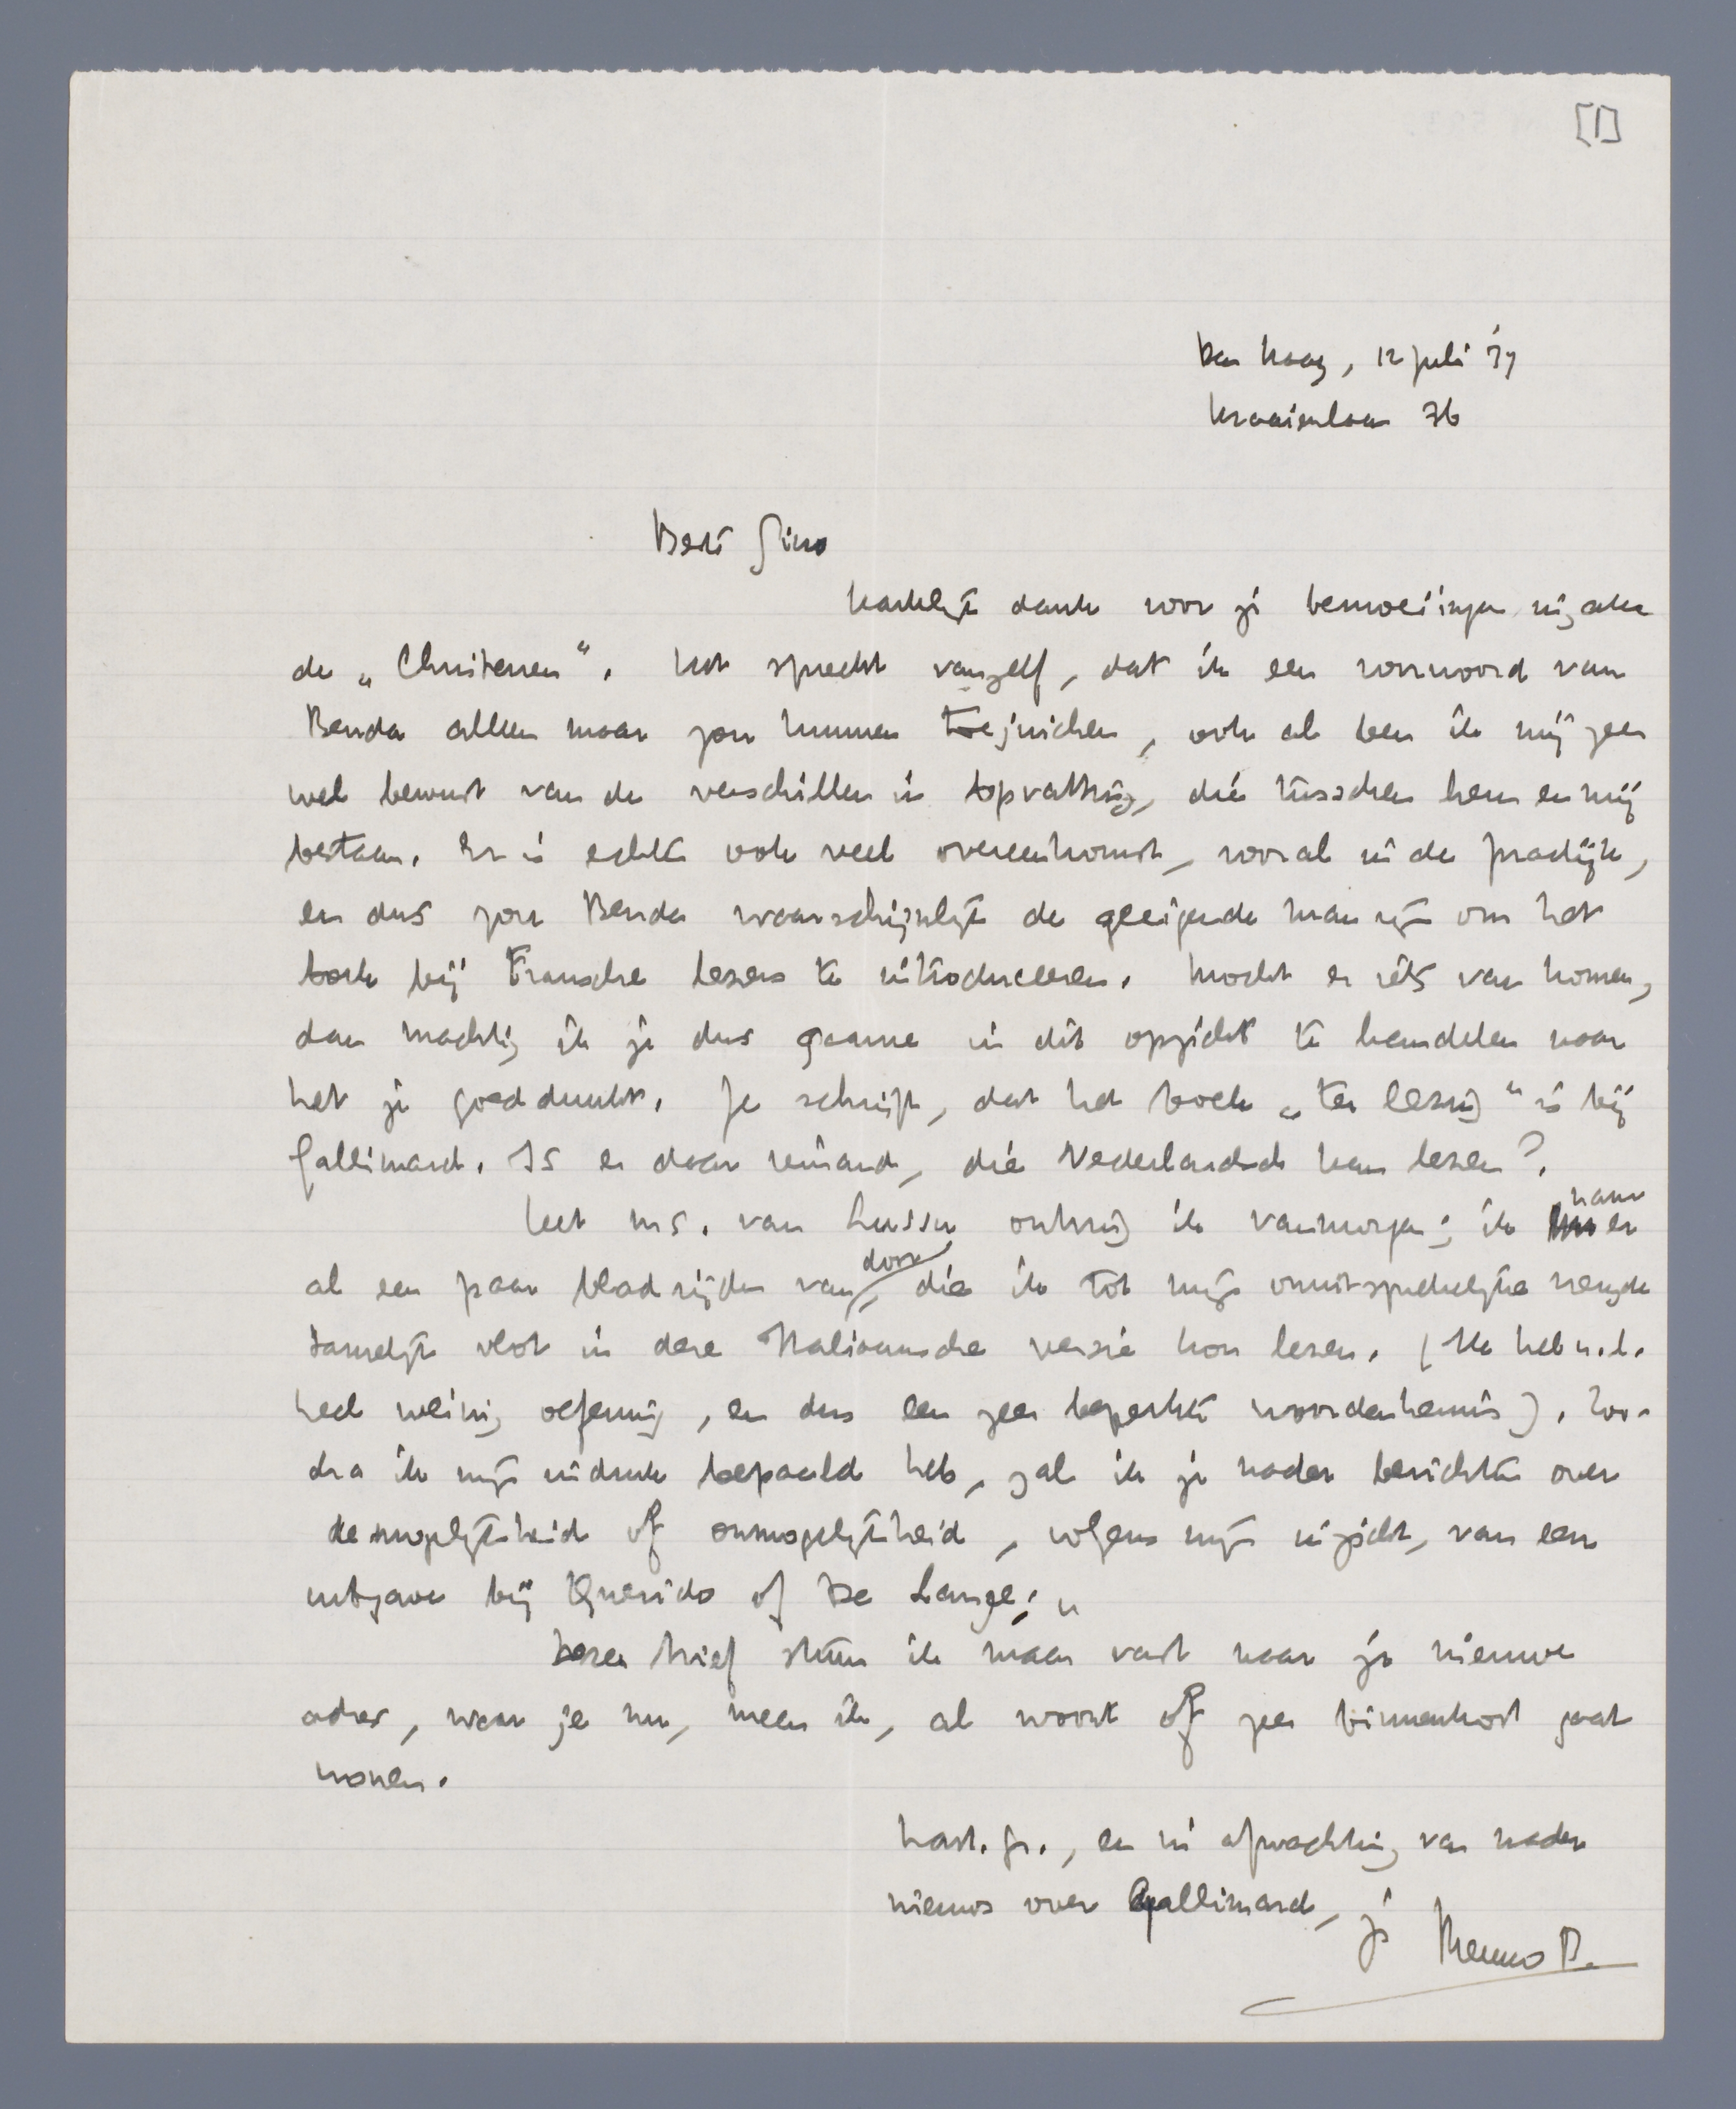 [1]
Den Haag, 12 juli '39
Kraaienlaan 36
Beste Gino
Hartelijk dank voor je bemoeiingen inzake
de „Christenen“. Het spreekt vanzelf, dat ik een voorwoord van
Benda alleen maar zou kunnen toejuichen, ook al ben ik mij zeer
wel bewust van de verschillen in opvatting, die tusschen hem en mij
bestaan. Er is echter ook veel overeenkomst, vooral in de practijk,
en dus zou Benda waarschijnlijk de geëigende man zijn om het
boek bij Fransche lezers te introduceeren. Mocht er iets van komen,
dan machtig ik je dus gaarne in dit opzicht te handelen naar
het je goeddunkt. Je schrijft, dat het boek „ter lezing“ is bij
Gallimard. Is er daar iemand, die Nederlandsch kan lezen?.
Het ms. van Lussu ontving ik vanmorgen; ik nam er
al een paar bladzijden van door, die ik tot mijn onuitsprekelijke vreugde
tamelijk vlot in deze Italiaansche versie kon lezen. (Ik heb n.l.
heel weinig oefening, en dus een zeer beperkte woordenkennis). Zoo-
dra ik mijn indruk bepaald heb, zal ik je nader berichten over
de mogelijkheid of onmogelijkheid, volgens mijn inzicht, van een
uitgave bij Querido of De Lange.
Dezen brief stuur ik maar vast naar je nieuwe
adres, waar je nu, meen ik, al woont of zeer binnenkort gaat
wonen.
Hart. gr., en in afwachting van nader
nieuws over Gallimard, je Menno B.